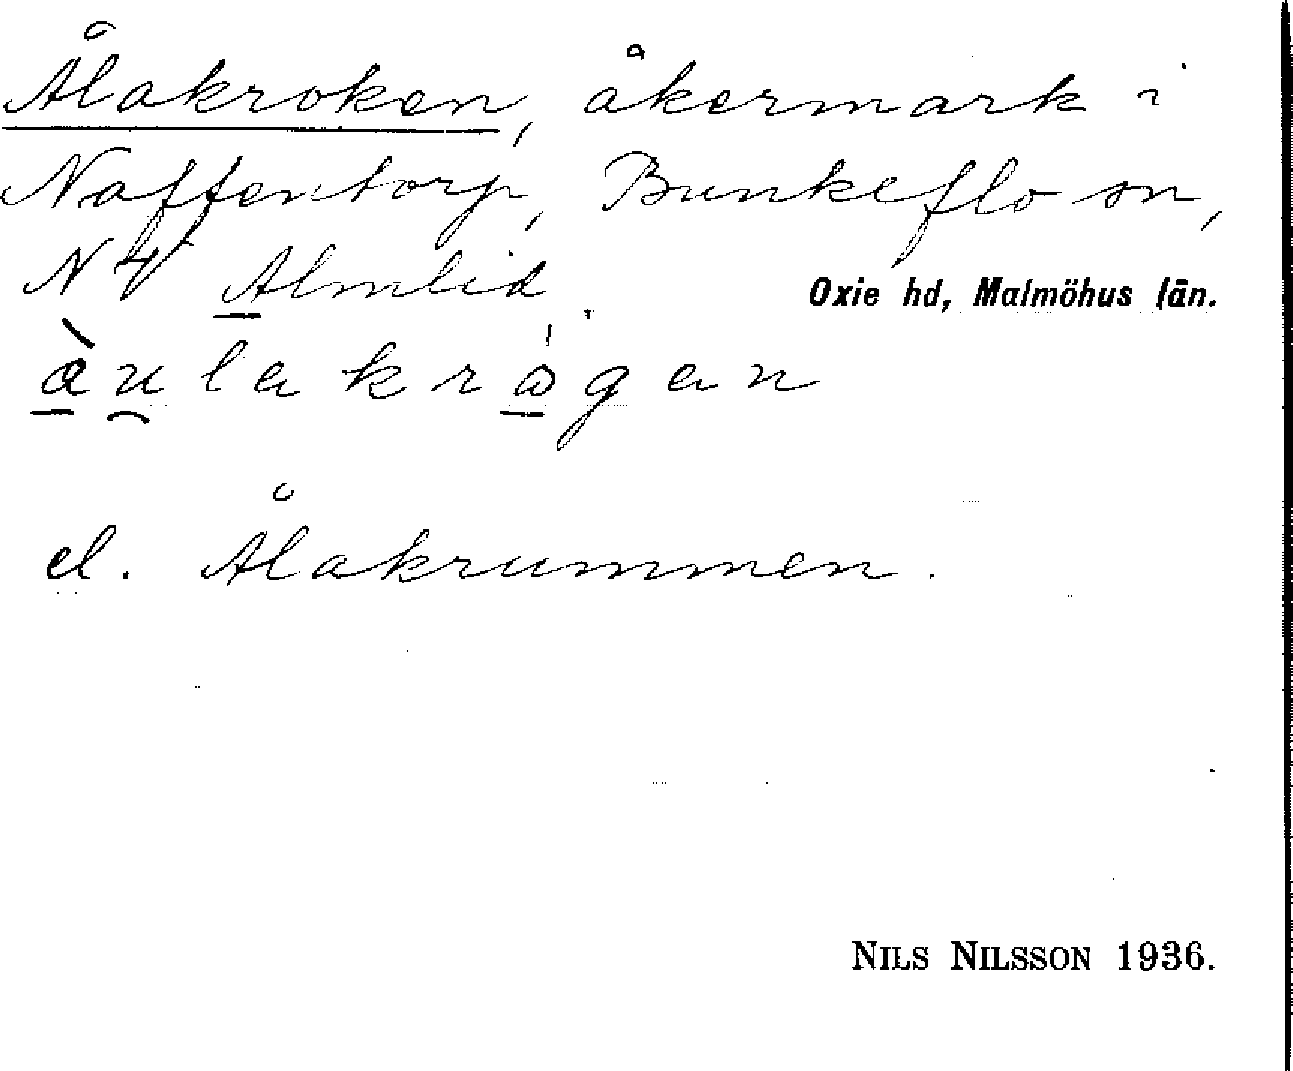 Ålakroken, åkermark i
Naffentorp, Bunkeflo sn,
N 4 Almlid
Oxie hd, Malmöhus län.
àulakrågan
el. Ålakrummen.
NILS NILSSON 1936.